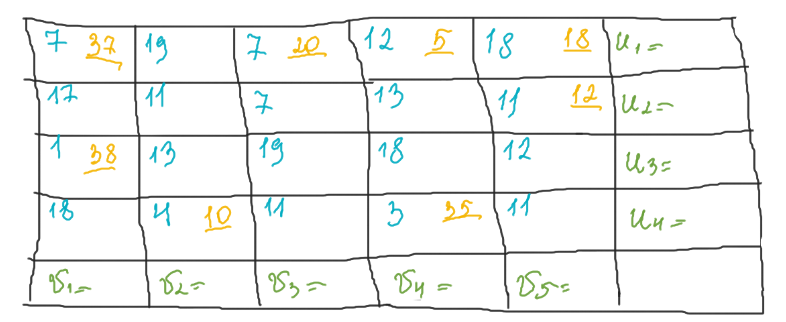 7 37 19 7 20 12 5 18 18 u₁=
17 11 7 13 11 12 u₂=
1 38 13 19 18 12 u₃=
18 4 10 11 3 35 11 u₄=
v₁= v₂= v₃= v₄= v₅=